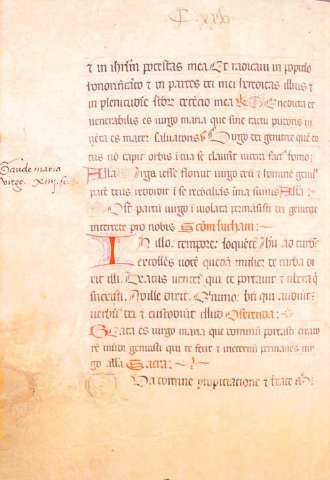 ⁊ in ihrl'm potestas mea Et radicavi in populo
honorificato ⁊ in partes dei mei hereditas illius ⁊
in plenitudine detencio mea Benedicta et
venerabilis es virgo maria que sine tactu pudoris in
venta es mater salvatoris Virgo dei genitrix que to
tus no capit orbis i tua se clausit viscera factus homo:
Alla Virga iesse floruit virgo deu ⁊ hominē genuit
pacē deus reddidit i se recōcilias ima sumis Alla:
Post partū virgo i violata permāsisti dei genitrix
intercede pro nobis Secm lucham:
In illo. tempore: loquēte ihū ad turbas
extollēs vocē quedā mulier de turba di
xit illi. Beatus venter qui te portavit ⁊ ubera q
suxisti. At ille dixit. Quinimo: bti qui audiūt
verbū dei ⁊ custodiūt illud Oferenda:
Beata es virgo maria que dominū portasti creato
rē mūdi genuisti qui te fecit ⁊ ineternū permanes vir
go alla Sacra:
Tua domine propiciacione ⁊ beate
Gaude maria
virgo